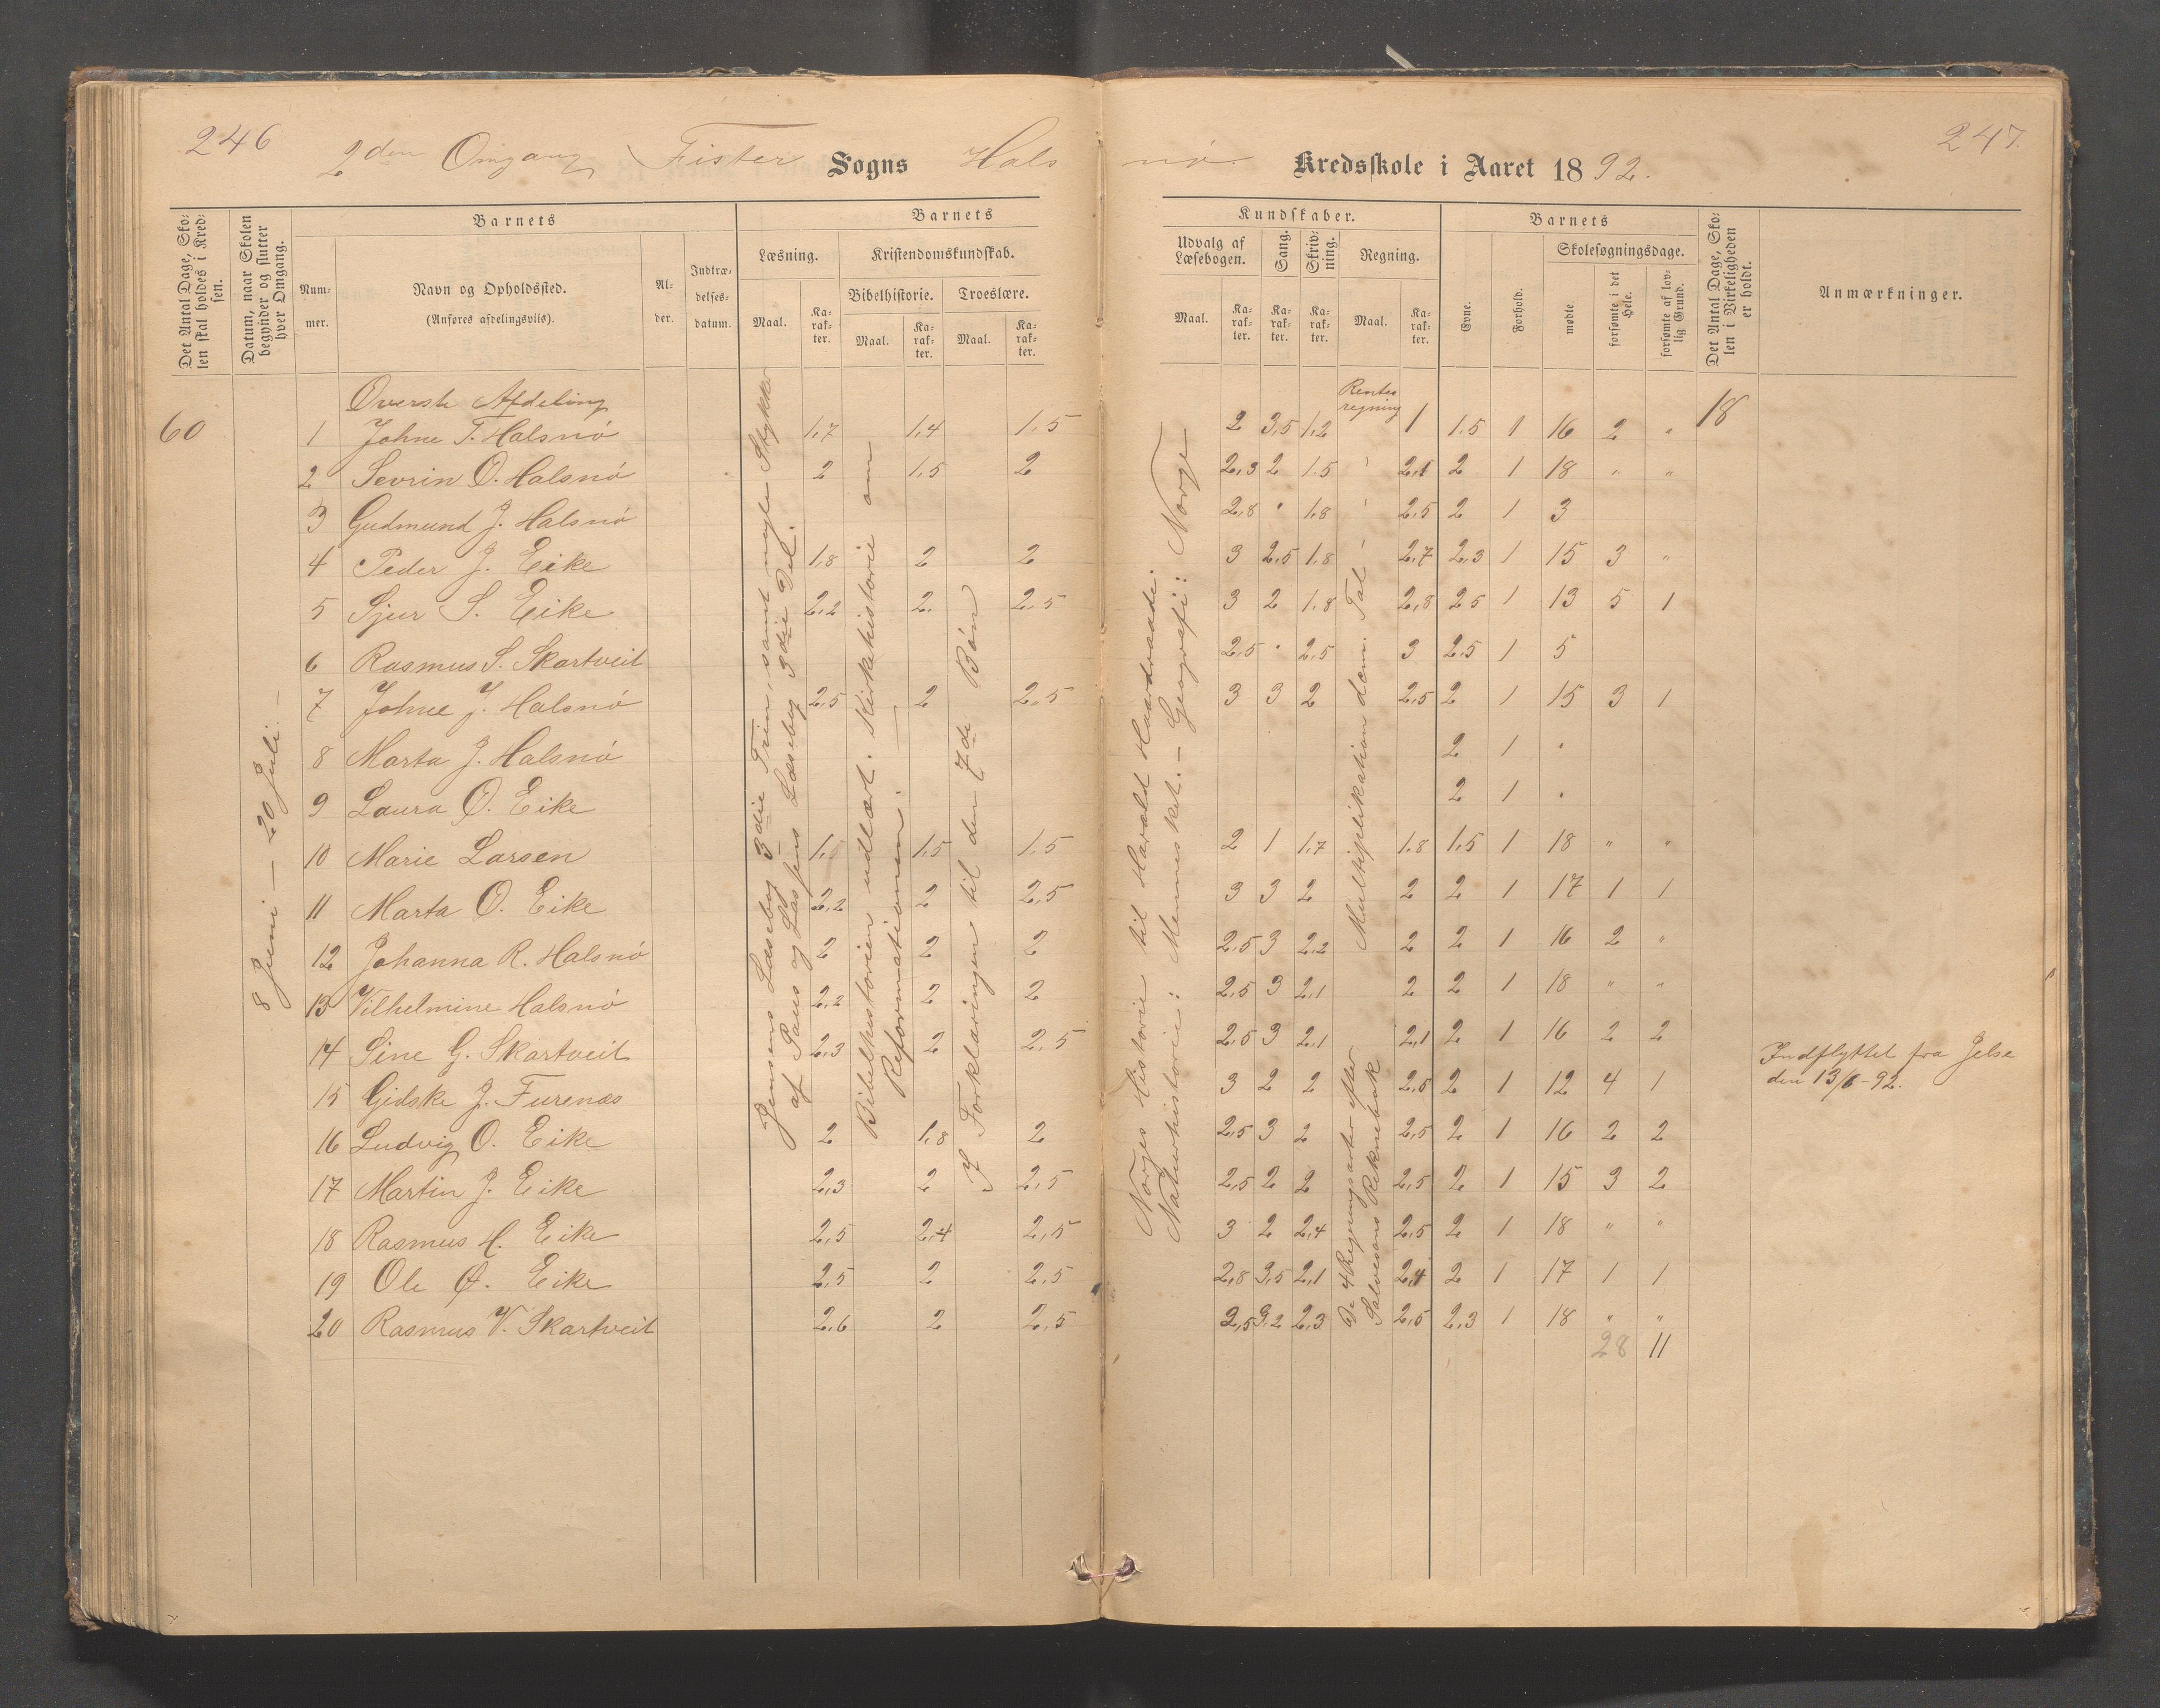 246
247.
2den Omgang Fister Sogns Halsnø Kredsskole i Aaret 1892.
Det Antal Dage, Skolen skal holdes i Kredsen.
Datum, naar Skolen begynder og slutter hver Omgang.
Barnets
Nummer.
Navn og Opholdssted.
(Anføres afdelingsvils).
Alder.
Indtrædelsesdatum.
Barnets
Læsning.
Maal.
Karakter.
Kristendomskundskab.
Bibelhistorie.
Maal.
Karakter.
Troeslære.
Maal.
Karakter.
Kundskaber.
Udvalg af Læsebogen.
Maal.
Karakter.
Sang.
Karakter.
Skrivning.
Karakter.
Regning.
Maal.
Karakter.
Barnets
Evne.
Forhold.
Skolesøgningsdage.
mødte
forsømte i det Hele.
forsømte af lovlig Grund.
Det Antal Dage, Skolen i Virkeligheden er holdt.
Anmærkninger.
Øverste Afdeling
60
8 Juni — 20 Juli. —
Jensens Læsebog 3die Trin, samt nogle Stykker
af Paus og Lassens Læsebog 3die Del.
Bibelhistorien udlært. Kirkehistorie om
Reformationen. —
I Forklaringen til den 7de Bøn
Norges Historie til Harald Haardraade.
Naturhistorie: Mennesket. — Geografi: Norge
Rentesregning
Multiplikation dem. Tal
De 4 Regningsarter efter
Salvesens Reknebok
18
1 Johne T. Halsnø 1,7 1,4 1.5 2 3,5 1,2 1 1.5 1 16 2 "
2 Sevrin O. Halsnø 2 1,5 2 2,3 2 1.5 2,1 2 1 18 " "
3 Gudmund J. Halsnø 2,8 . 1.8 2.5 2 1 3
4 Peder J. Eike 1,8 2 2 3 2,5 1.8 2,7 2,3 1 15 3 "
5 Sjur S. Eike 2,2 2. 2.5 3 2 1.8 2,8 25 1 13 5 1
6 Rasmus S. Skartveit 2,5 . 2,5 3 2.5 1 5
7 Johne J. Halsnø 2,5 2 2,5 3 3 2 2,5 2 1 15 3 1
8 Marta J. Halsnø 2 1 .
9 Laura O. Eike 2 1 .
10 Marie Larsen 1, 1,5 1.5 2 1 1,7 1.8 1,5 1 18 " "
11 Marta O. Eike 2,2 2 2,5 3 3 2 2 2 1 17 1 1
12 Johanna R. Halsnø 2 2 2 2,5 3 2,2 2 2 1 16 2 "
13 Vilhelmine Halsnø 2,2 2 2 2,5 3 2,1 2 2 1 18 " "
14 Sine G. Skartveit 2,3 2 2,5 2,5 3 2,1 2,1 2 1 16 2 2
15 Gidske J. Furenæs 3 2 2 2,5 2 1 12 4 1 Indflyttet fra Jelse
den 13/6-92.
16 Ludvig O. Eike 2 1,8 2 2,5 3 2 2,5 2 1 16 2 2
17 Martin J. Eike 2,3 2 2,5 2,5 2 2 2,5 2 1 15 3 2
18 Rasmus H. Eike 2,5 2,4 2,5 3 2 2,4 2,5 2 1 18 " "
19 Ole Ø. Eike 2,5 2 2,5 2,8 3,5 2,1 2,4 2 1 17 1 1
20 Rasmus V. Skartveit 2,6 2 2,5 2,5 3,2 2,3 2,5 2,3 1 18 " "
28 11